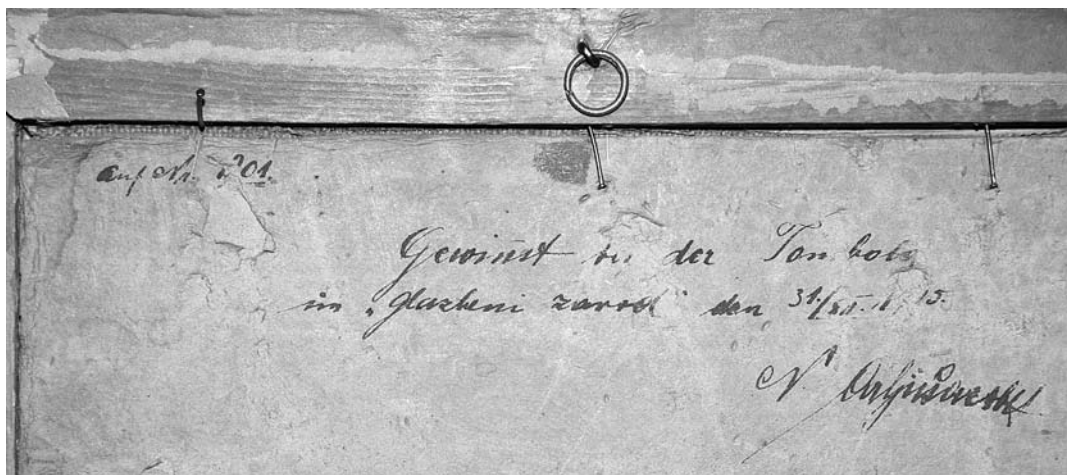 auf Nr. 201.
Gewinnst in der Tombola
im „glazbeni zavod" den 31./XII. 15.